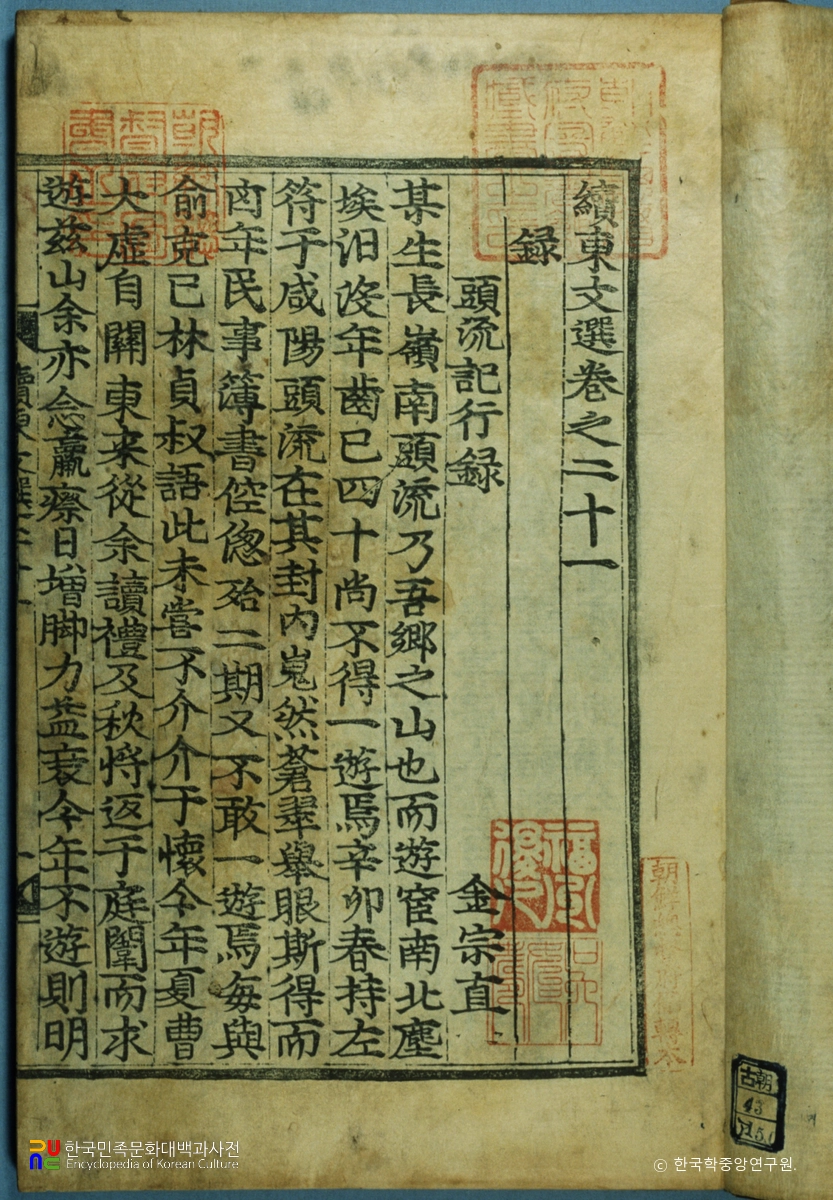 續東文選卷之二十一
録
頭流記行録 金宗直
某生長嶺南頭流乃吾鄉之山也而遊宦南北塵
埃汨沒年齒已四十尚不得一遊焉辛卯春持左
符于咸陽頭流在其封內嵬然蒼翠舉眼斯得而
凶年民事簿書倥傯殆二期又不敢一遊焉每與
俞克己林貞叔語此未嘗不介介于懷今年夏曹
大虛自關東来從余讀禮及秋將返于庭闈而求
遊茲山余亦念羸瘵日增脚力益衰今年不遊則明
古朝
한국민족문화대백과사전
Encyclopedia of Korean Culture
© 한국학중앙연구원.